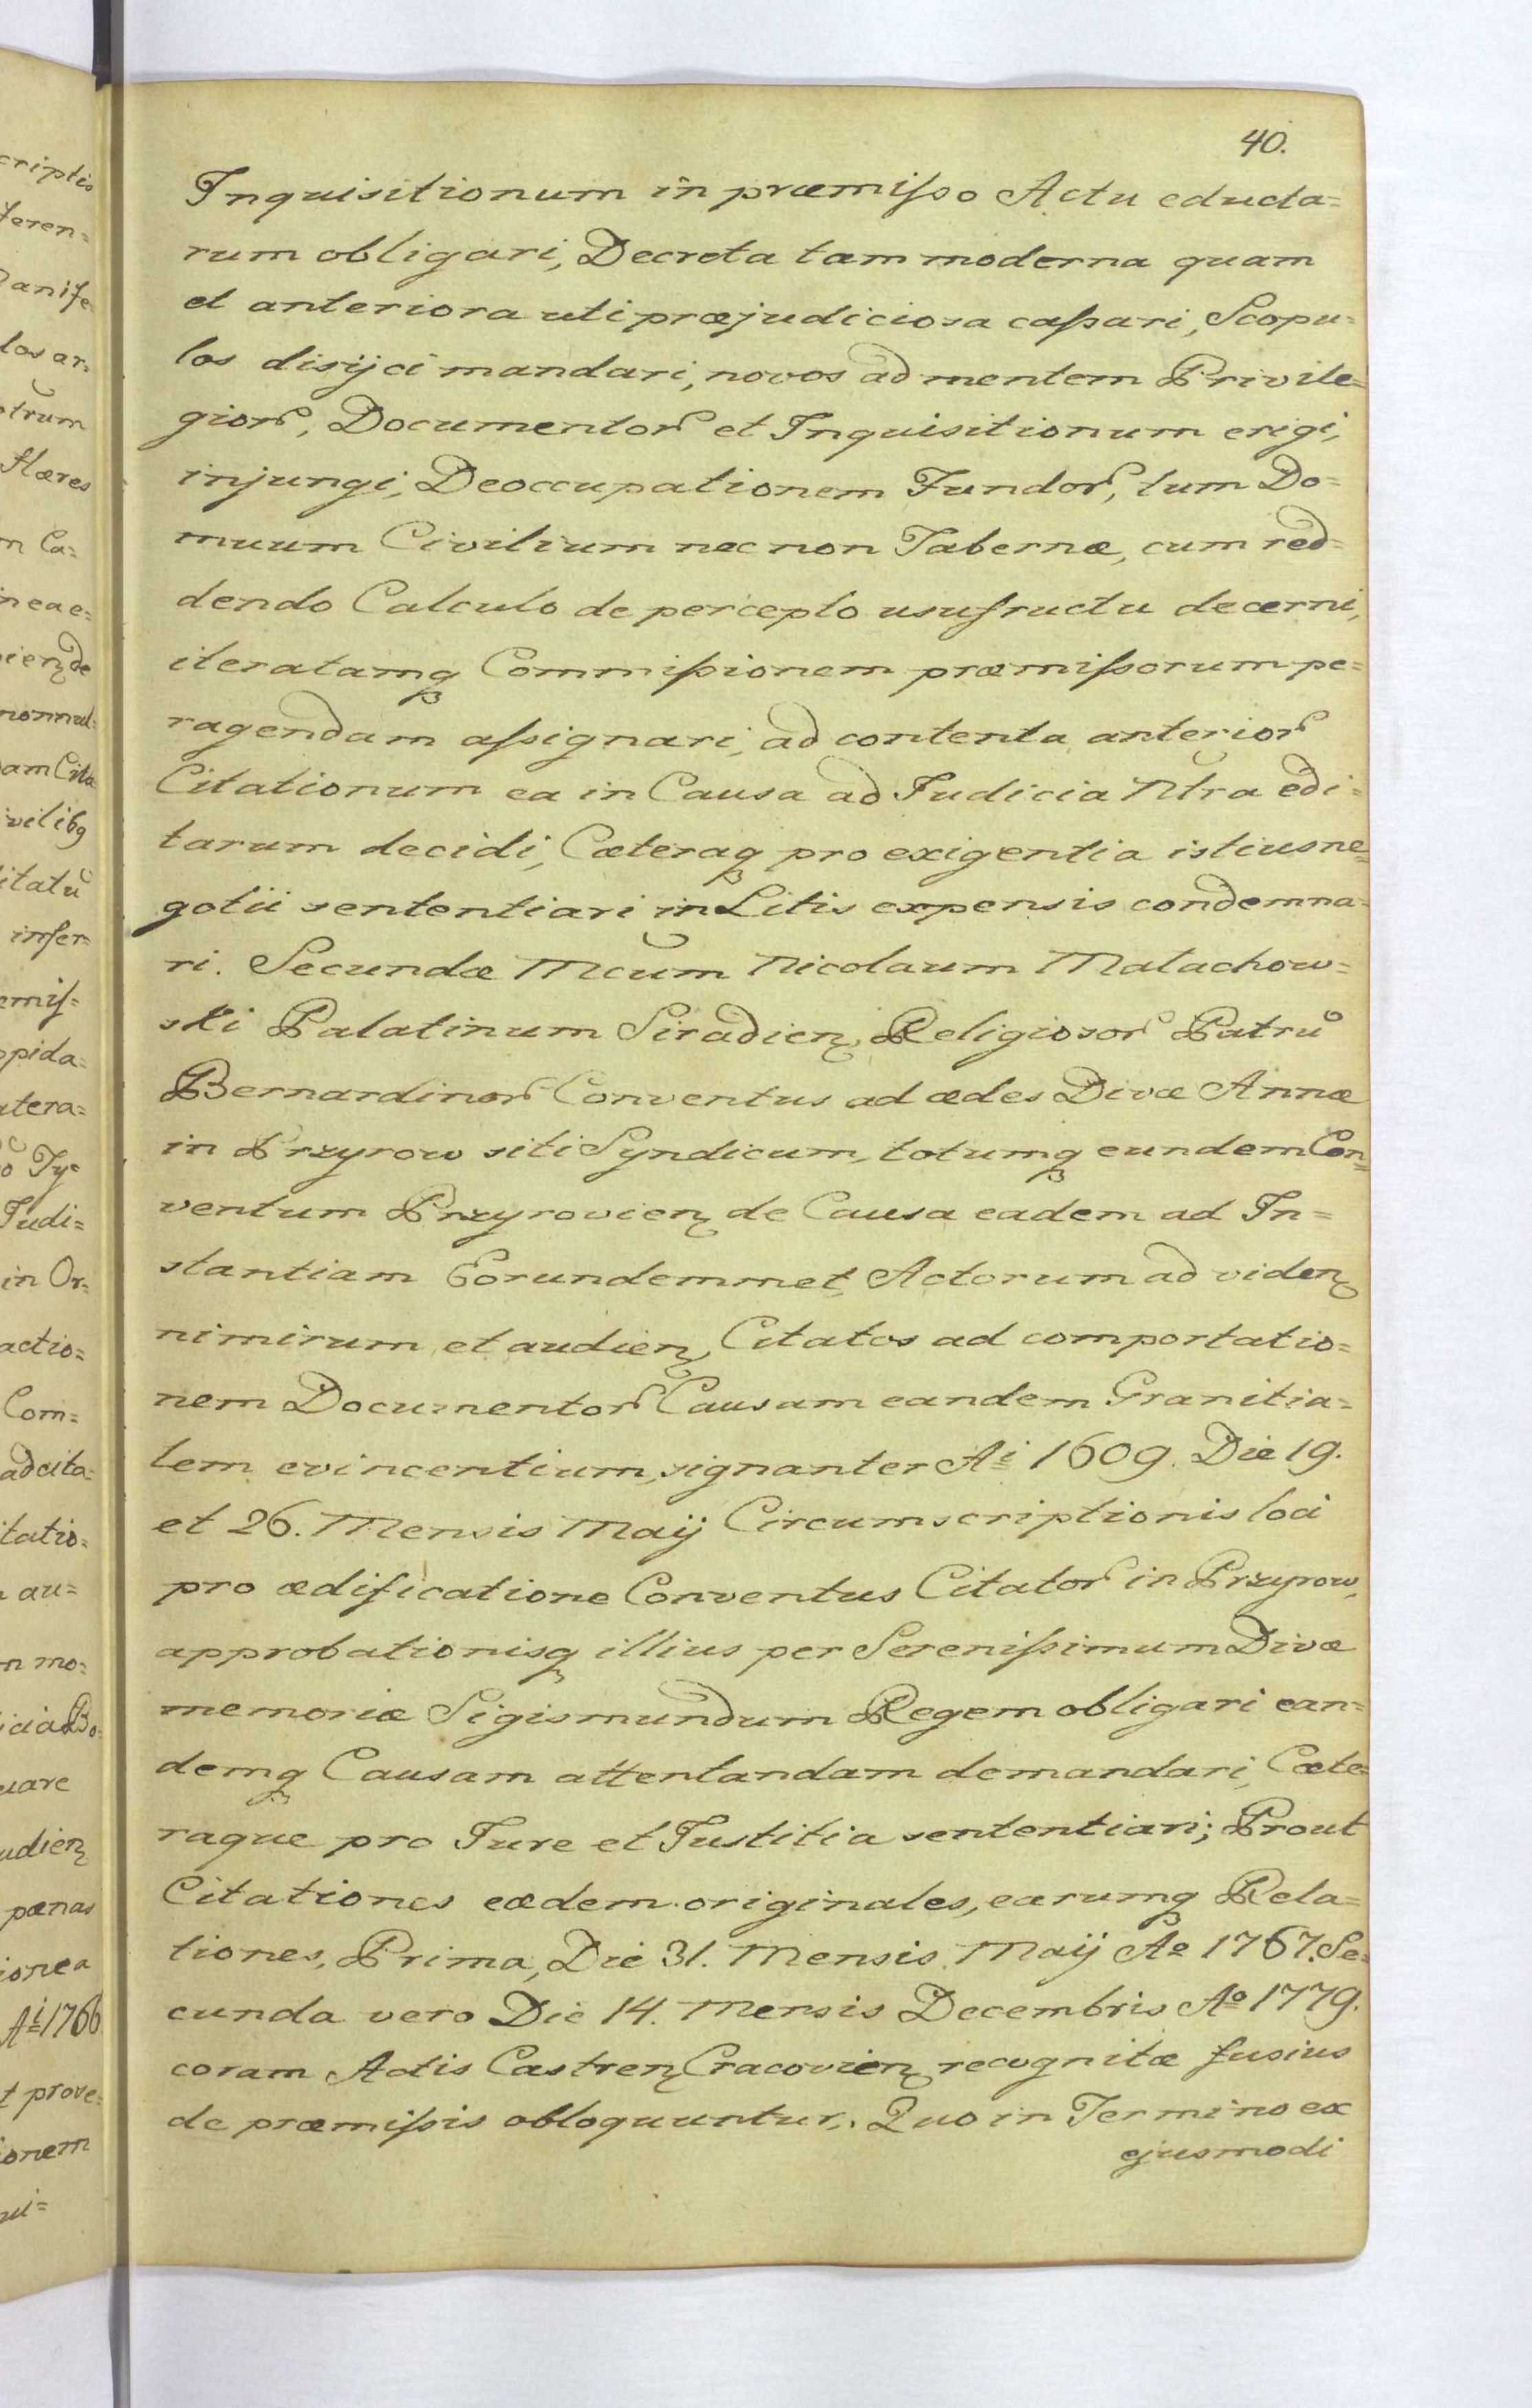 40.
Inquisitionum in præmiſso Actu educta=
rum obligari, Decreta tam moderna quam
et anteriora uti præjudiciosa caſsari, Scopu=
los disijci mandari, novos ad mentem Privile=
gior, Documentor et Inquisitionum erigi,
injungi, Deoccupationem Fundor, tum Do=
muum Civilium nec non Tabernæ, cum red=
dendo Calculo de percepto usufructu decerni,
iteratamq Commiſsionem præmiſsorum pe=
ragendam aſsignari, ad contenta anterior
Citationum ea in Causa ad Judicia Ntra edi=
tarum decidi, Cæteraq pro exigentia istius ne=
gotii sententiari in Litis expensis condemna=
ri. Secundæ Mcum Nicolaum Małachow=
ski Palatinum Siradien, Religiosor Patrũ
Bernardinor Conventus ad ædes Divæ Annæ
in Przyrow siti Syndicum, totumq eundem Con=
ventum Przyrovien de Causa eadem ad In=
stantiam Eorundemmet Actorum ad viden
nimirum et audien, Citatos ad comportatio=
nem Documentor Causam eandem Granitia=
lem evincentium, signanter Ai 1609. Die 19.
et 26. Mensis Maij Circumscriptionis loci
pro ædificatione Conventus Citator in Przyrow,
approbationisq illius per Sereniſsimum Divæ
memoriæ Sigismundum Regem obligari ean=
demq Causam attentandam demandari, Cæte=
raque pro Jure et Justitia sententiari; Prout
Citationes eædem originales, earumq Rela=
tiones, Prima, Die 31. Mensis Maij Ao 1767. Se=
cunda vero Die 14. Mensis Decembris Ao 1779.
coram Actis Castren Cracovien recognitæ fusius
de præmiſsis obloquuntur. Quo in Termino ex
ejusmodi